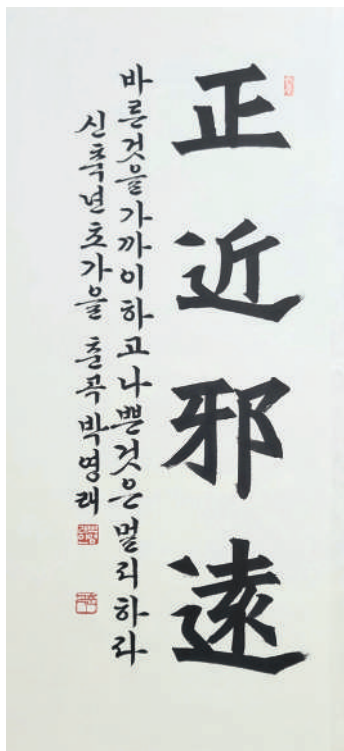 正近邪遠
바른것을가까이하고나쁜것은멀리하라
신축년초가을 춘곡박영래